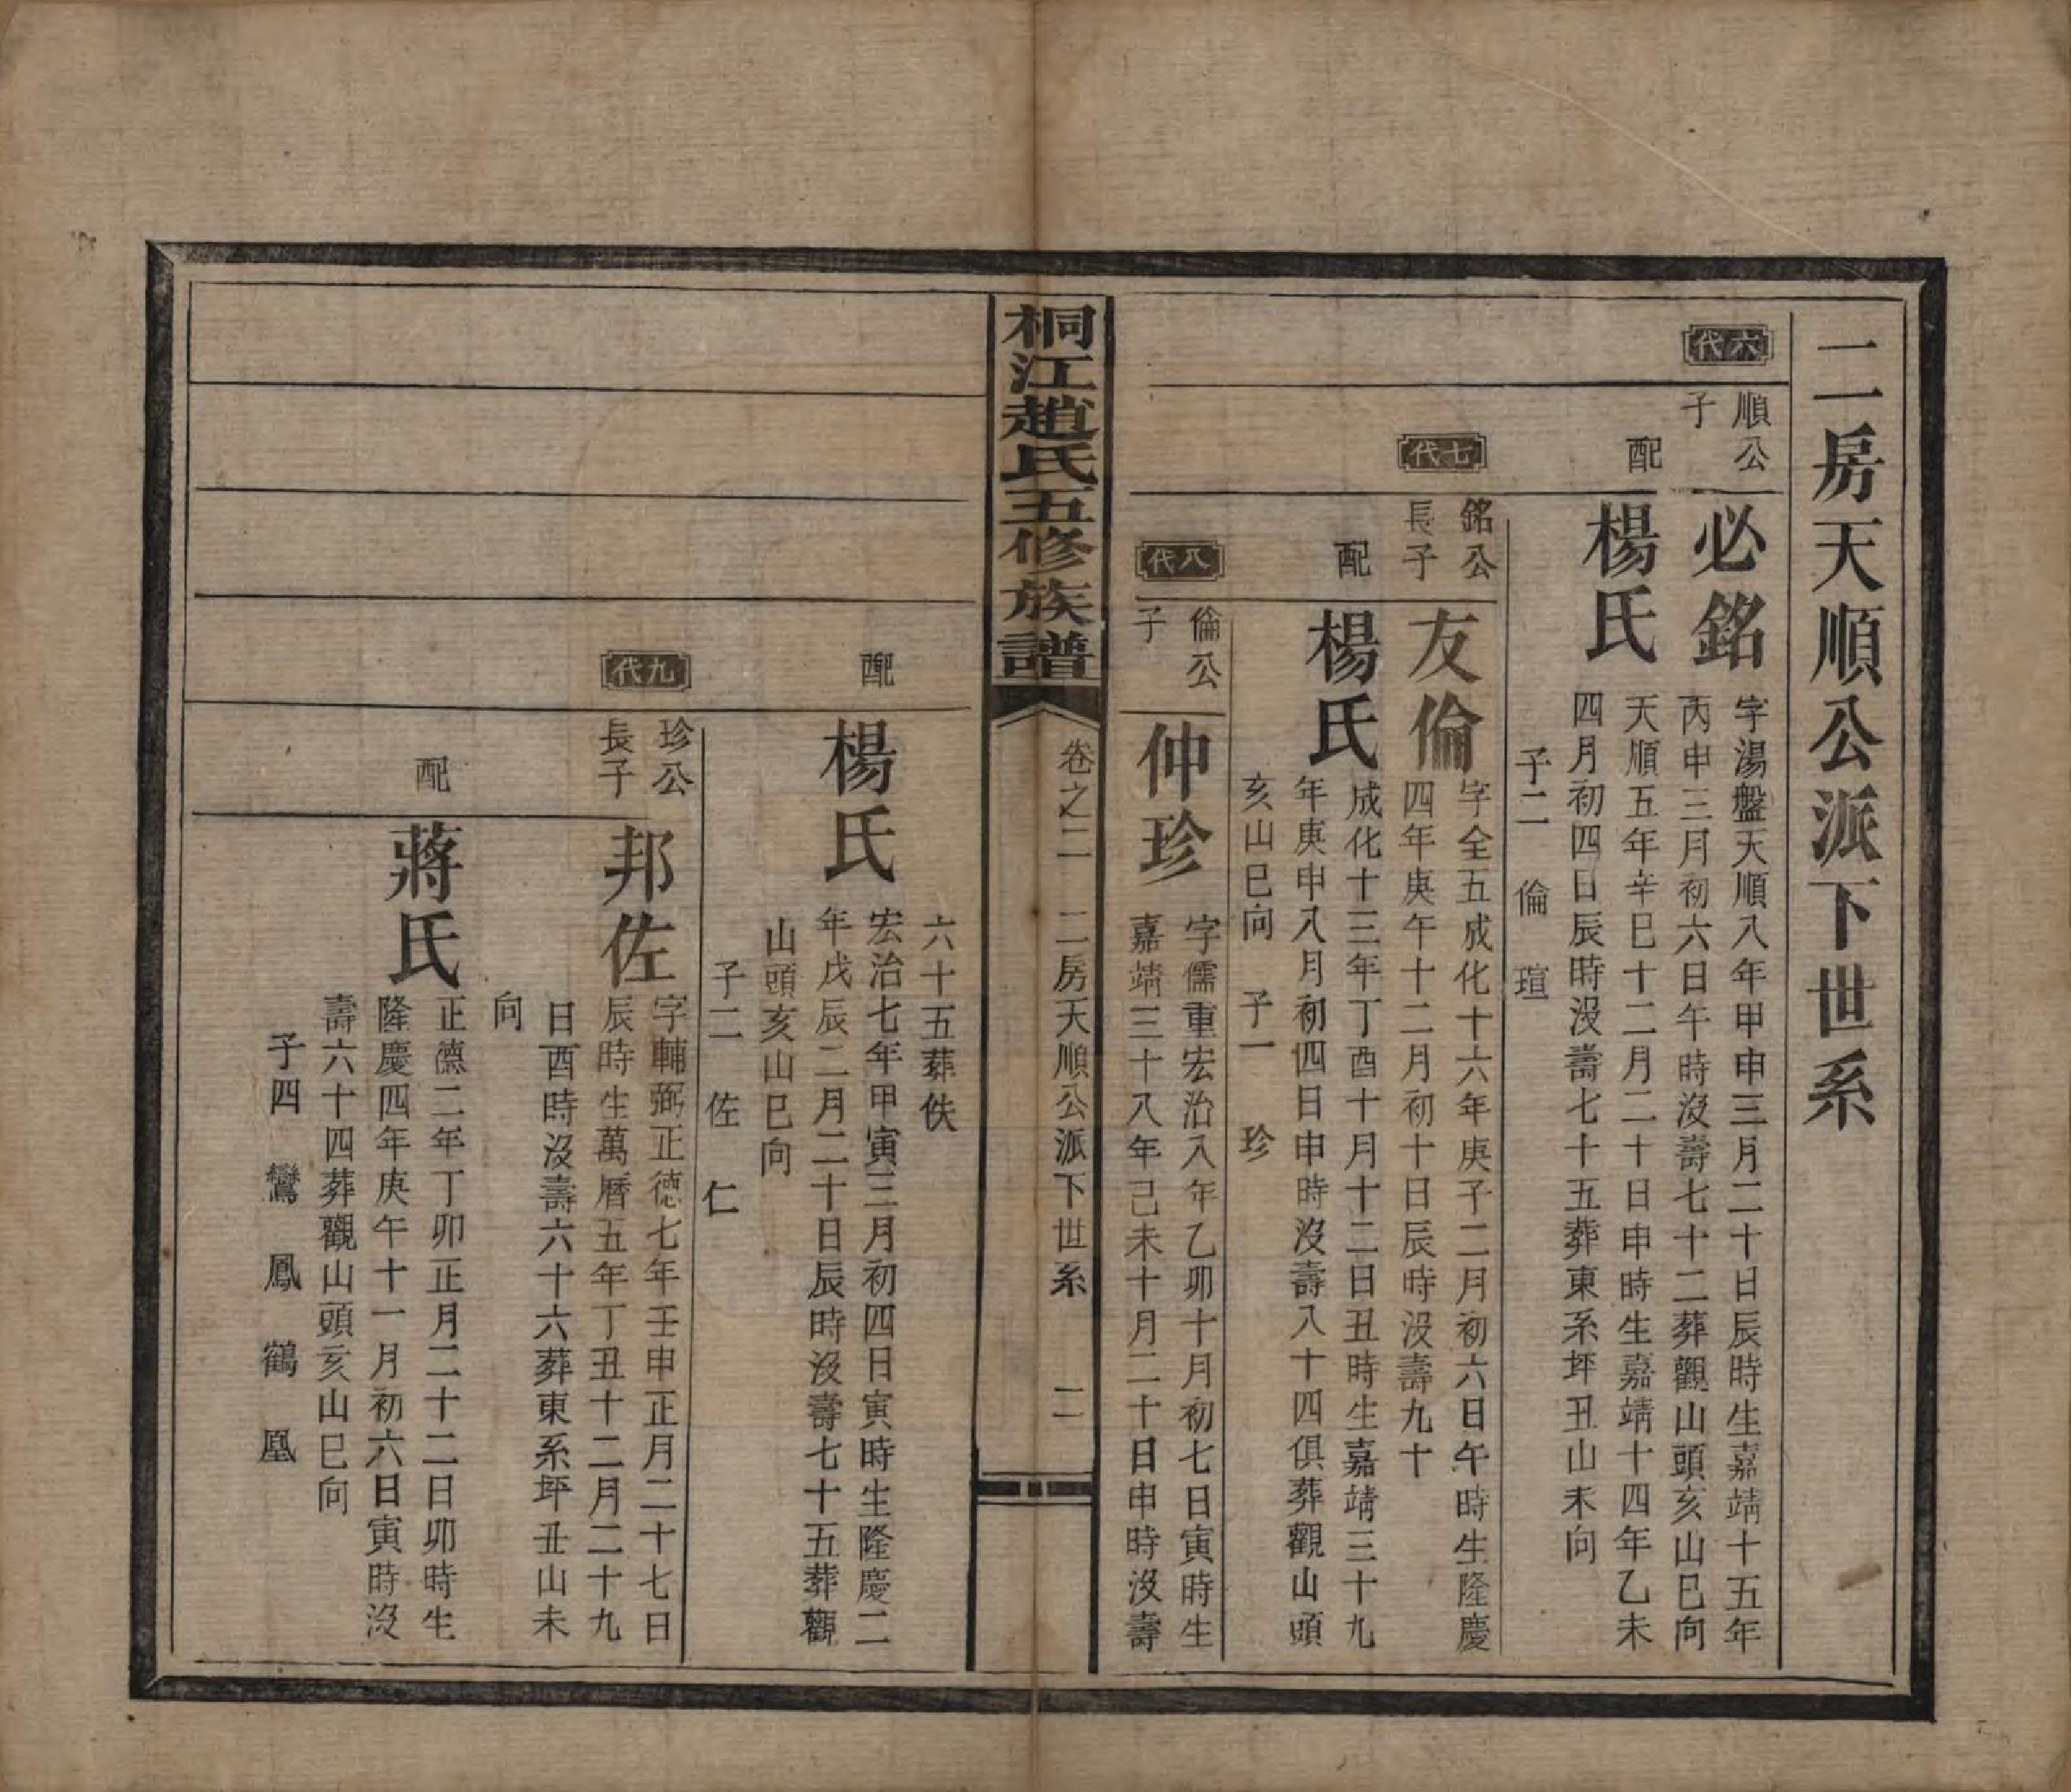 二房天順公派下世系
六代
順公
子
必銘
字湯盤天順八年甲申三月二十日辰時生嘉靖十五年
丙申三月初六日午時沒壽七十二葬觀山頭亥山巳向
配
楊氏
天順五年辛巳十二月二十日申時生嘉靖十四年乙未
四月初四日辰時沒壽七十五葬東系坪丑山未向
子二　倫　瑄
七代
銘公
長子
友倫
字全五成化十六年庚子二月初六日午時生隆慶
四年庚午十二月初十日辰時沒壽九十
配
楊氏
成化十三年丁酉十月十二日丑時生嘉靖三十九
年庚申八月初四日申時沒壽八十四俱葬觀山頭
亥山巳向　子一　珍
八代
倫公
子
仲珍
字儒重宏治八年乙卯十月初七日寅時生
嘉靖三十八年己未十月二十日申時沒壽
桐江趙氏五修族譜
卷之二　二房天順公派下世系　二
六十五葬佚
配
楊氏
宏治七年甲寅三月初四日寅時生隆慶二
年戊辰二月二十日辰時沒壽七十五葬觀
山頭亥山巳向
子二　佐　仁
九代
珍公
長子
邦佐
字輔弼正德七年壬申正月二十七日
辰時生萬曆五年丁丑十二月二十九
日酉時沒壽六十六葬東系坪丑山未
向
配
蔣氏
正德二年丁卯正月二十二日卯時生
隆慶四年庚午十一月初六日寅時沒
壽六十四葬觀山頭亥山巳向
子四　鸞　鳳　鶴　凰